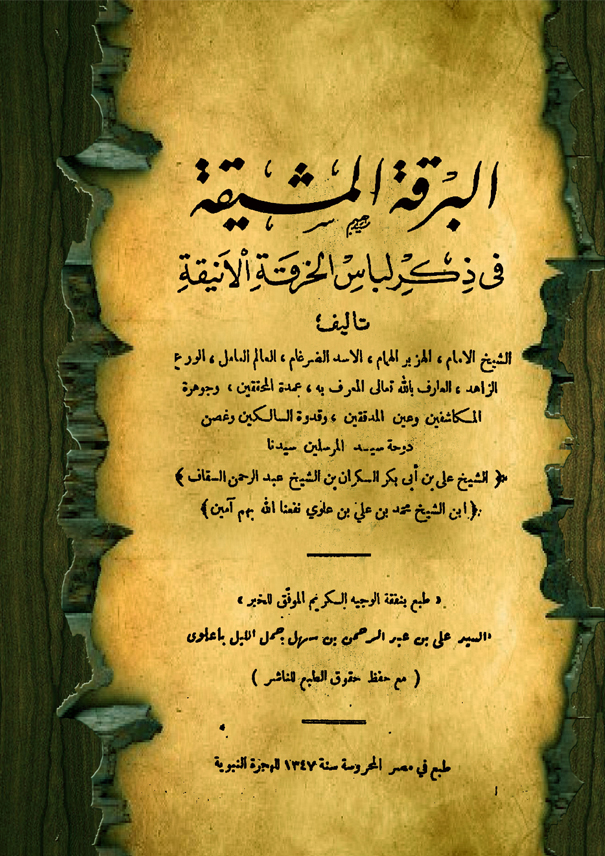 البرقة المشيقة
في ذِكْرِ لباسِ الخرقَةِ الْاَنيقةِ
تاليف؛
الشيخ الامام ، الهزبر الهمام ، الاسد الضرغام ، العالم العامل ، الورع
الزاهد ، العارف بالله تعالى المعرف به ، عمدة المحققين ، وجوهرة
المكاشفين وعين المدققين ، وقدوة السالكين وغصن
دوحة سيد المرسلين سيدنا
﴿ الشيخ على بن أبى بكر السكران بن الشيخ عبد الرحمن السقاف ﴾
﴿ ابن الشيخ محمد بن علي بن علوي نفعنا الله بهم آمين ﴾
« طبع بنفقة الوجيه الكريم الموفّق للخير »
السيد على بن عبد الرحمن بن سهل جمل الليل باعلوى
( مع حفظ حقوق الطبع للناشر )
طبع في مصر المحروسة سنة ١٣٤٧ للهجرة النبوية
١